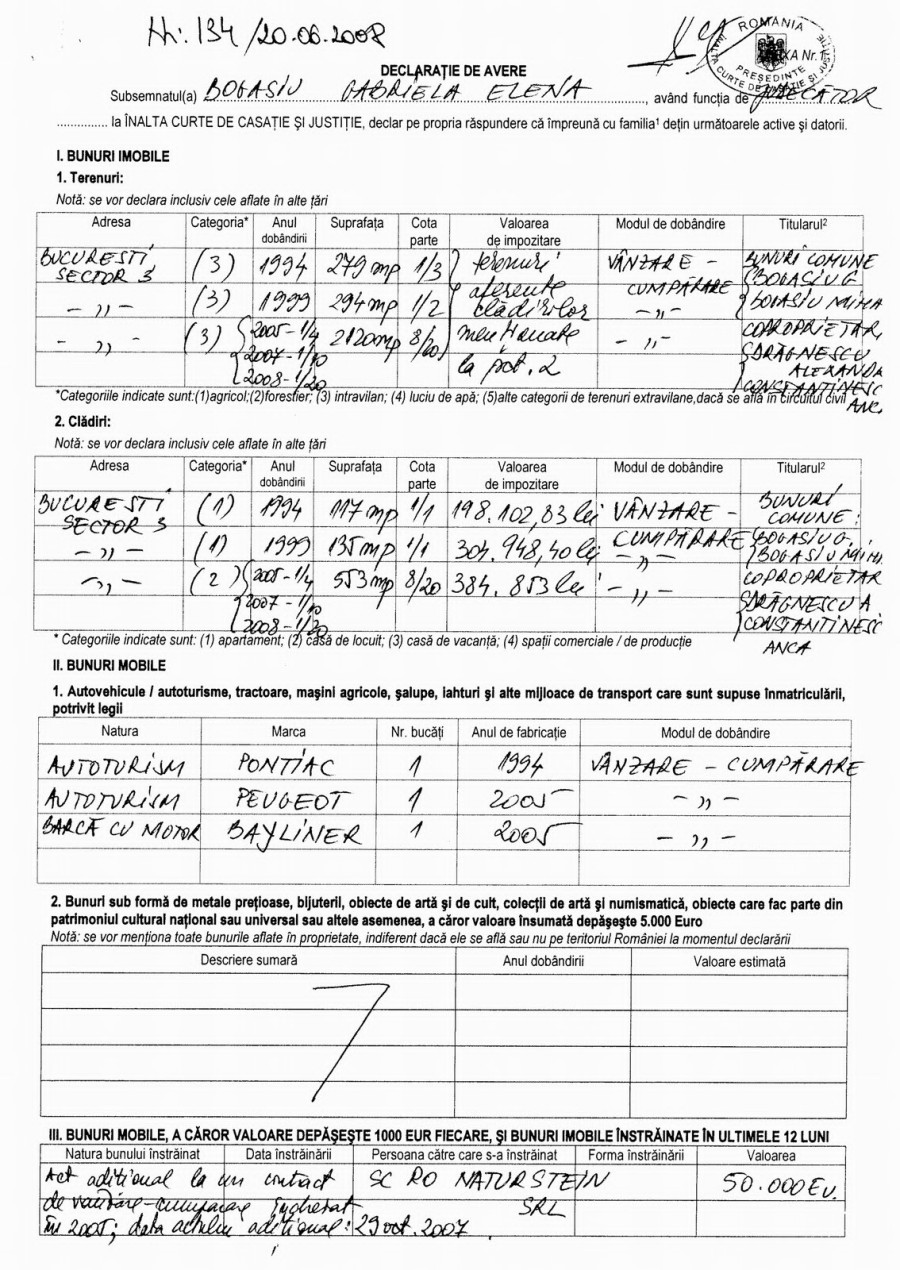 Nr. 134/20.06.2008
ROMÂNIA
ÎNALTA CURTE DE CASAȚIE ȘI JUSTIȚIE
PREȘEDINTE
XA Nr. 1
DECLARAȚIE DE AVERE
Subsemnatul(a) BOGASIU GABRIELA ELENA, având funcția de JUDECĂTOR
la ÎNALTA CURTE DE CASAȚIE ȘI JUSTIȚIE, declar pe propria răspundere că împreună cu familia¹ dețin următoarele active și datorii.
I. BUNURI IMOBILE
1. Terenuri:
Notă: se vor declara inclusiv cele aflate în alte țări
Adresa Categoria* Anul dobândirii Suprafața Cota parte Valoarea de impozitare Modul de dobândire Titularul²
BUCUREȘTI, SECTOR 3 (3) 1994 279 mp 1/3 terenuri VÂNZARE - CUMPĂRARE BUNURI COMUNE (BOGASIU G
- ,, - (3) 1999 294 mp 1/2 aferente clădirilor - ,, - BOGASIU MIHA
- ,, - (3) 2005 - 1/4 2120 mp 8/20 menționate - ,, - COPROPRIETAR,
2007 - 1/10 la pct. 2 DRĂGNESCU ALEXANDR
2008 - 1/20 CONSTANTINESC ANCA
*Categoriile indicate sunt:(1)agricol;(2)forestier; (3) intravilan; (4) luciu de apă; (5)alte categorii de terenuri extravilane,dacă se află în circuitul civil
2. Clădiri:
Notă: se vor declara inclusiv cele aflate în alte țări
Adresa Categoria* Anul dobândirii Suprafața Cota parte Valoarea de impozitare Modul de dobândire Titularul²
BUCUREȘTI, SECTOR 3 (1) 1994 117 mp 1/1 198.102,83 lei VÂNZARE - CUMPĂRARE BUNURI COMUNE:
- ,, - (1) 1999 135 mp 1/1 304.948,40 lei - ,, - (BOGASIU G, BOGASIU MIHA
- ,, - (2) 2005 - 1/4 553 mp 8/20 384.853 lei - ,, - COPROPRIETAR
2007 - 1/10 DRĂGNESCU A
2008 - 1/20 CONSTANTINESC ANCA
* Categoriile indicate sunt: (1) apartament; (2) casă de locuit; (3) casă de vacanță; (4) spații comerciale / de producție
II. BUNURI MOBILE
1. Autovehicule / autoturisme, tractoare, mașini agricole, șalupe, iahturi și alte mijloace de transport care sunt supuse înmatriculării,
potrivit legii
Natura Marca Nr. bucăți Anul de fabricație Modul de dobândire
AUTOTURISM PONTIAC 1 1994 VÂNZARE - CUMPĂRARE
AUTOTURISM PEUGEOT 1 2005 - ,, -
BARCĂ CU MOTOR BAYLINER 1 2005 - ,, -
2. Bunuri sub formă de metale prețioase, bijuterii, obiecte de artă și de cult, colecții de artă și numismatică, obiecte care fac parte din
patrimoniul cultural național sau universal sau altele asemenea, a căror valoare însumată depășește 5.000 Euro
Notă: se vor menționa toate bunurile aflate în proprietate, indiferent dacă ele se află sau nu pe teritoriul României la momentul declarării
Descriere sumară Anul dobândirii Valoare estimată
III. BUNURI MOBILE, A CĂROR VALOARE DEPĂȘEȘTE 1000 EUR FIECARE, ȘI BUNURI IMOBILE ÎNSTRĂINATE ÎN ULTIMELE 12 LUNI
Natura bunului înstrăinat Data înstrăinării Persoana către care s-a înstrăinat Forma înstrăinării Valoarea
Act adițional la un contract SC RO NATURSTEIN 50.000 Eu.
de vânzare-cumpărare încheiat SRL
în 2005; data actului adițional: 29 oct. 2007